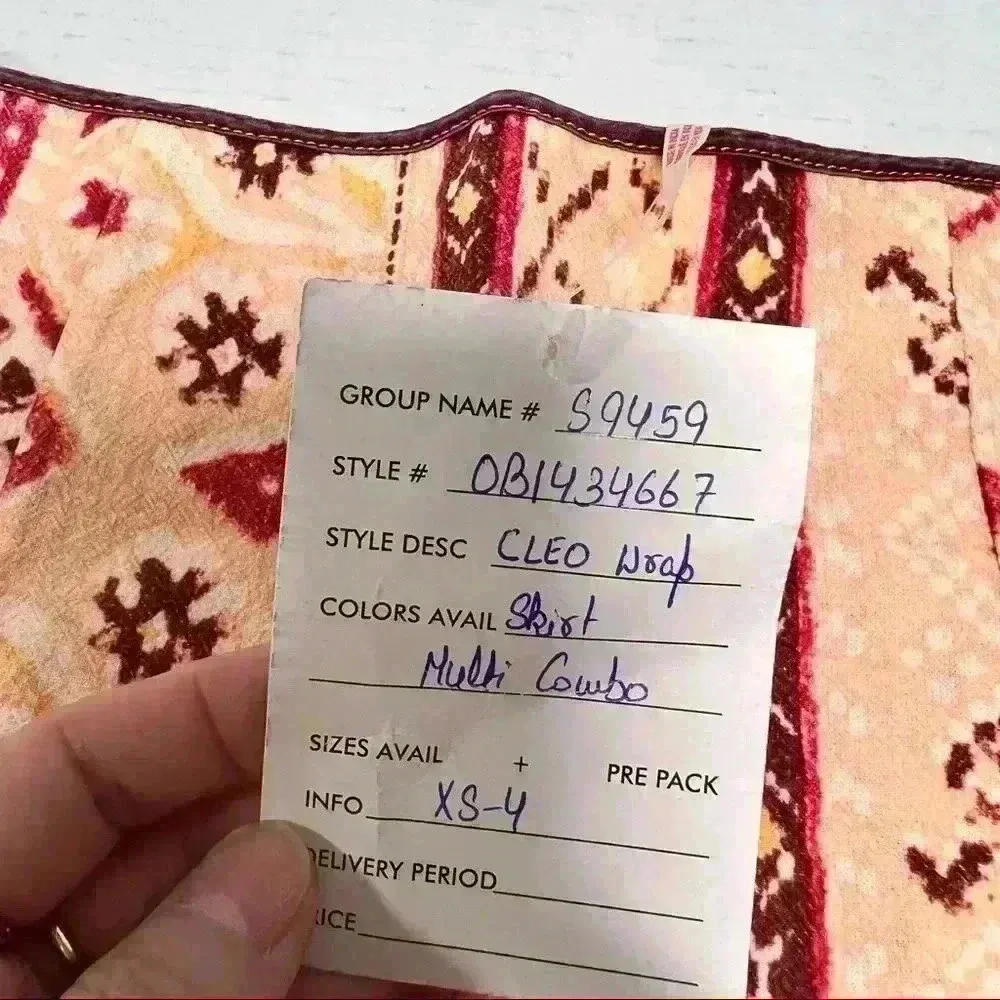 GROUP NAME # S9459
STYLE # OB1434667
STYLE DESC CLEO Wrap
COLORS AVAIL Skirt
Multi Combo
SIZES AVAIL + PRE PACK
INFO XS-4
DELIVERY PERIOD
RICE